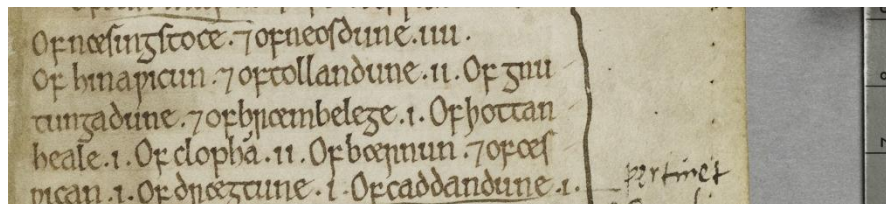 Of næsingstoce . ⁊ of neosdune . iiii .
Of hinaƿicun . ⁊ of tollandune . ii . Of gnu
tungadune . ⁊ of bræmbelege . i . Of þottan
heale . i . Of clophā . ii . Of bærnun . ⁊ of ces
ƿican . i . Of drægtune . i . Of caddandune . i .
pertinet